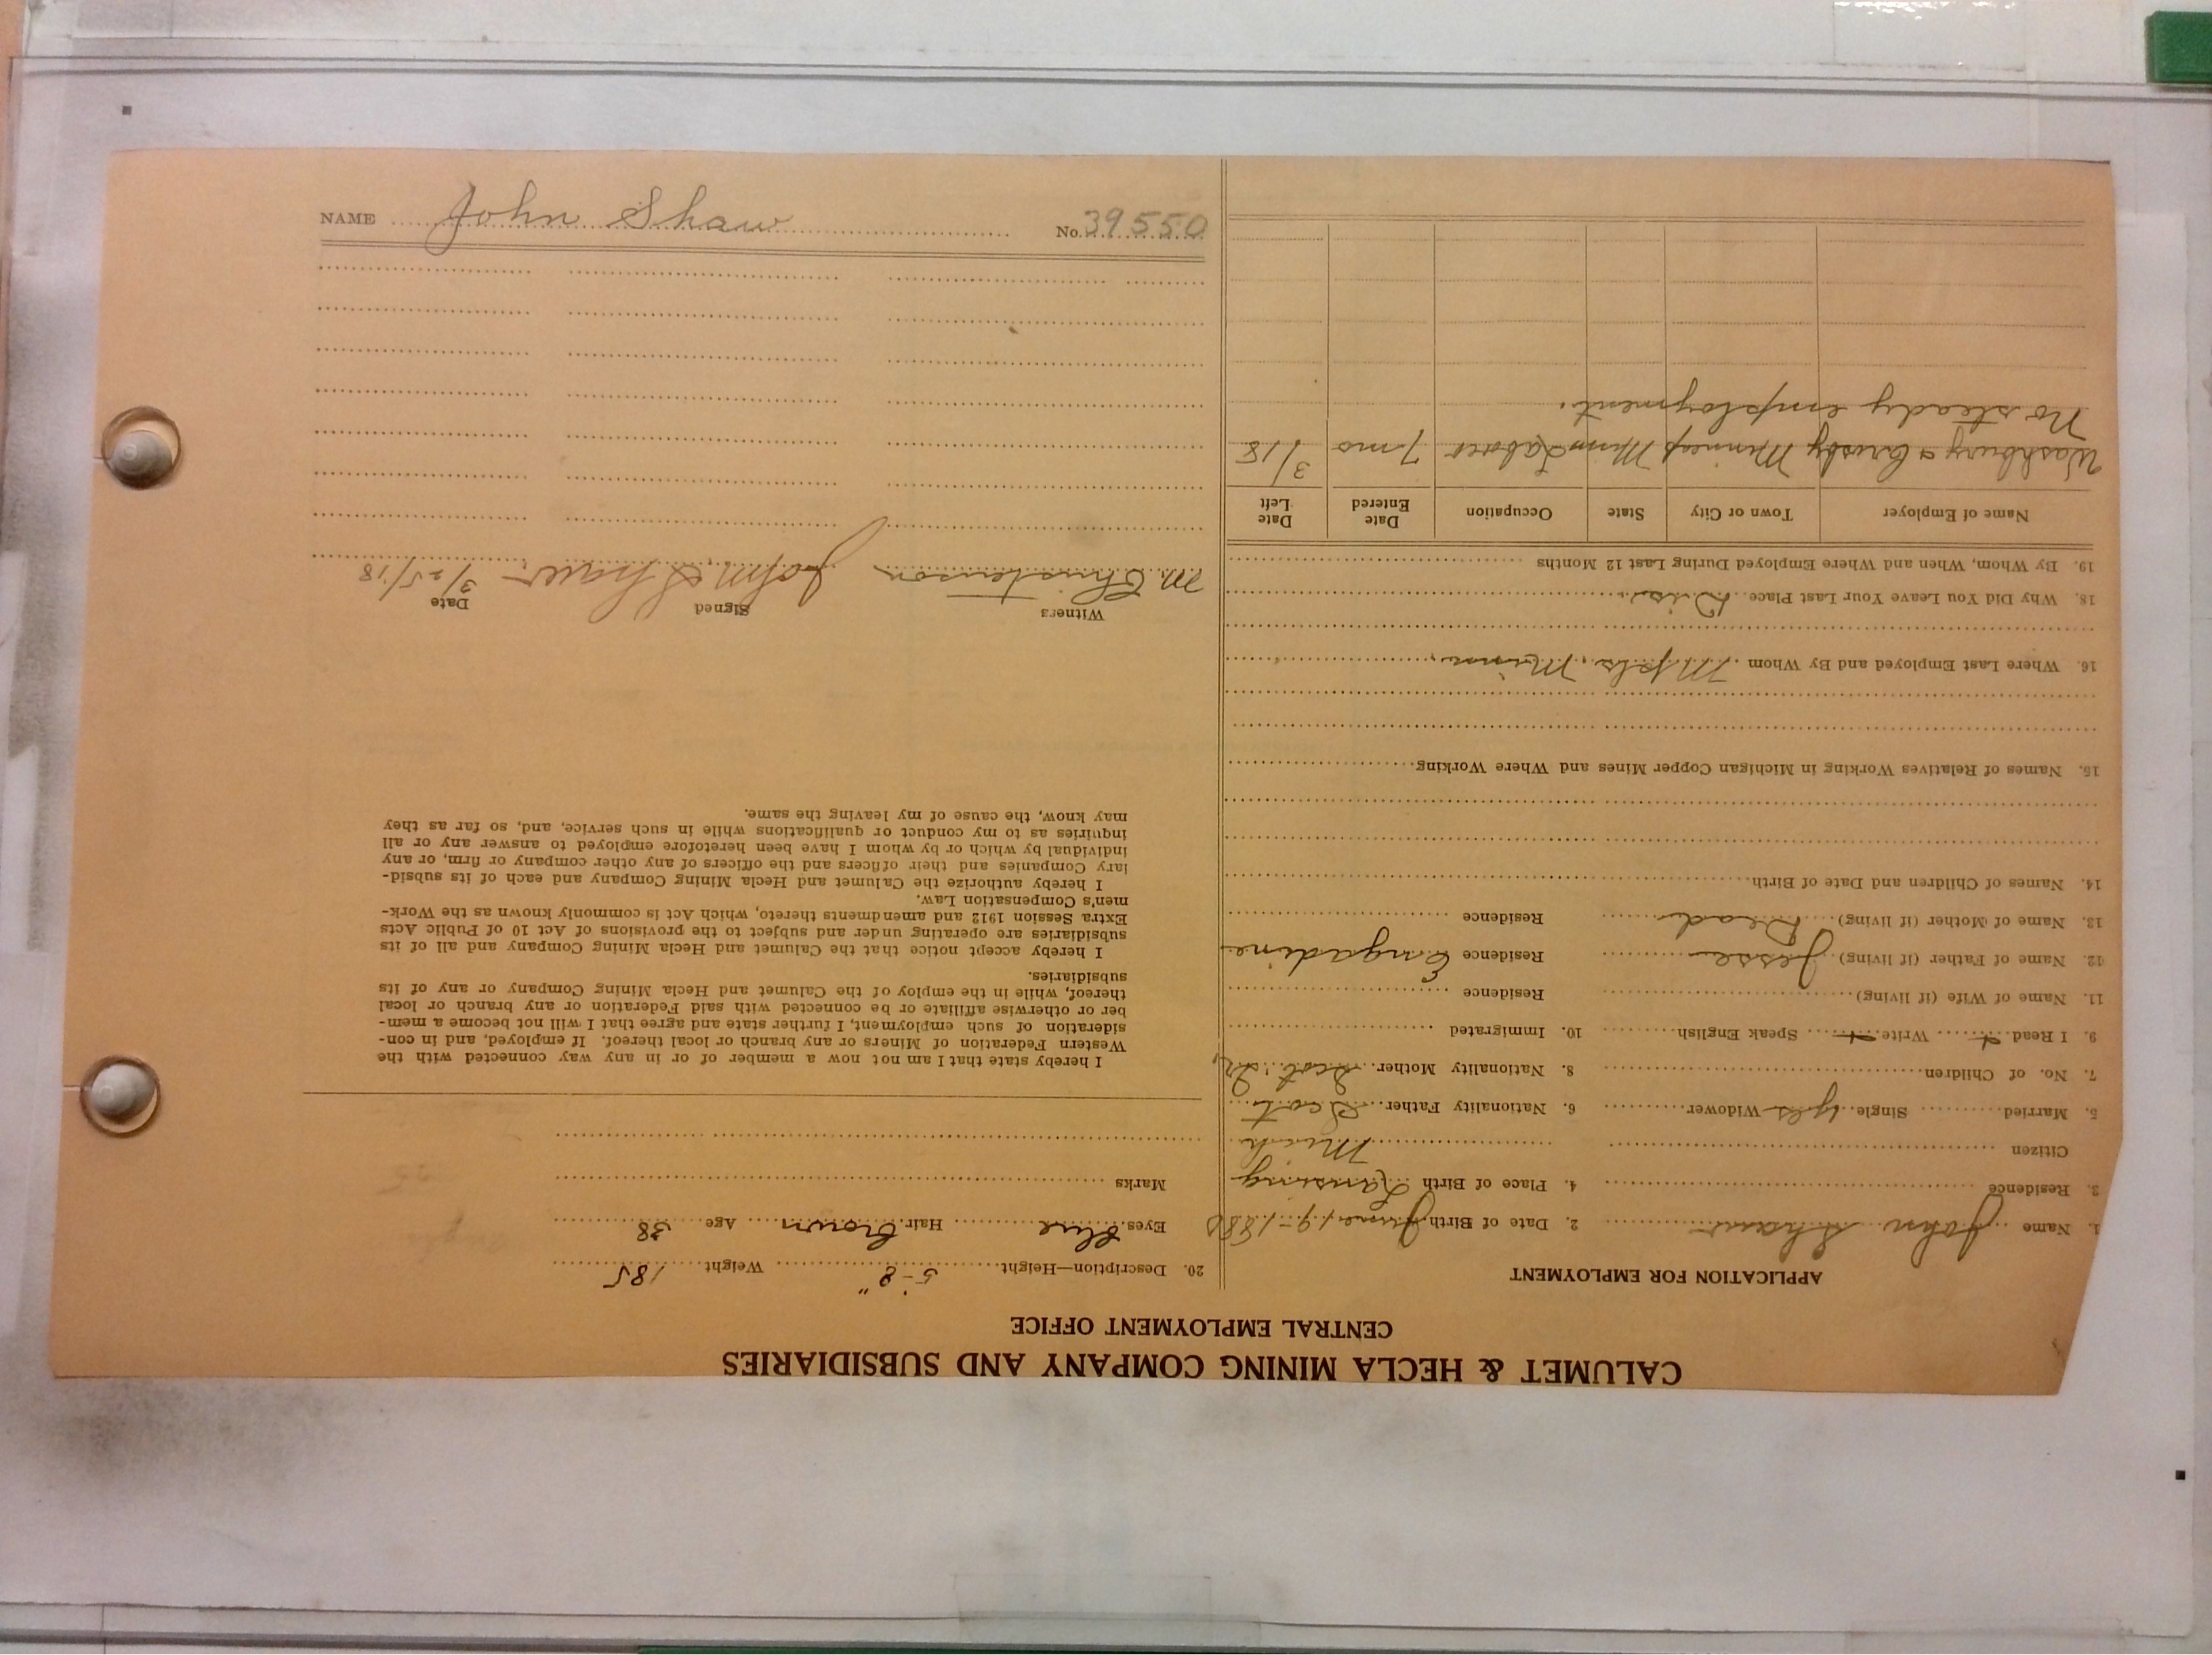 CALUMET & HECLA MINING COMPANY AND SUBSIDIARIES
CENTRAL EMPLOYMENT OFFICE
APPLICATION FOR EMPLOYMENT
1. Name John Shaw 2. Date of Birth June 19-1880
3. Residence 4. Place of Birth Lansing
Citizen Mich.
5. Married Single yes Widower 6. Nationality Father Scot
7. No. of Children 8. Nationality Mother Scot. Ir.
9. I Read Write Speak English 10. Immigrated
11. Name of Wife (if living) Residence
12. Name of Father (if living) Jesse Residence Engadine
13. Name of Mother (if living) Dead Residence
14. Names of Children and Date of Birth
15. Names of Relatives Working in Michigan Copper Mines and Where Working
16. Where Last Employed and By Whom Mpls. Minn.
18. Why Did You Leave Your Last Place Dis.
19. By Whom, When and Where Employed During Last 12 Months
Name of Employer Town or City State Occupation Date Entered Date Left
Washburn & Crosby Minneap Minn Labor 7 mo 3/18
No steady employment.
20. Description—Height 5-8" Weight 185
Eyes blue Hair brown Age 38
Marks
I hereby state that I am not now a member of or in any way connected with the
Western Federation of Miners or any branch or local thereof. If employed, and in con-
sideration of such employment, I further state and agree that I will not become a mem-
ber or otherwise affiliate or be connected with said Federation or any branch or local
thereof, while in the employ of the Calumet and Hecla Mining Company or any of its
subsidiaries.
I hereby accept notice that the Calumet and Hecla Mining Company and all of its
subsidiaries are operating under and subject to the provisions of Act 10 of Public Acts
Extra Session 1912 and amendments thereto, which Act is commonly known as the Work-
men's Compensation Law.
I hereby authorize the Calumet and Hecla Mining Company and each of its subsid-
iary Companies and their officers and the officers of any other company or firm, or any
individual by which or by whom I have been heretofore employed to answer any or all
inquiries as to my conduct or qualifications while in such service, and, so far as they
may know, the cause of my leaving the same.
Witness Signed Date
M. Christenson John Shaw 3/25/18
NAME John Shaw No. 39550